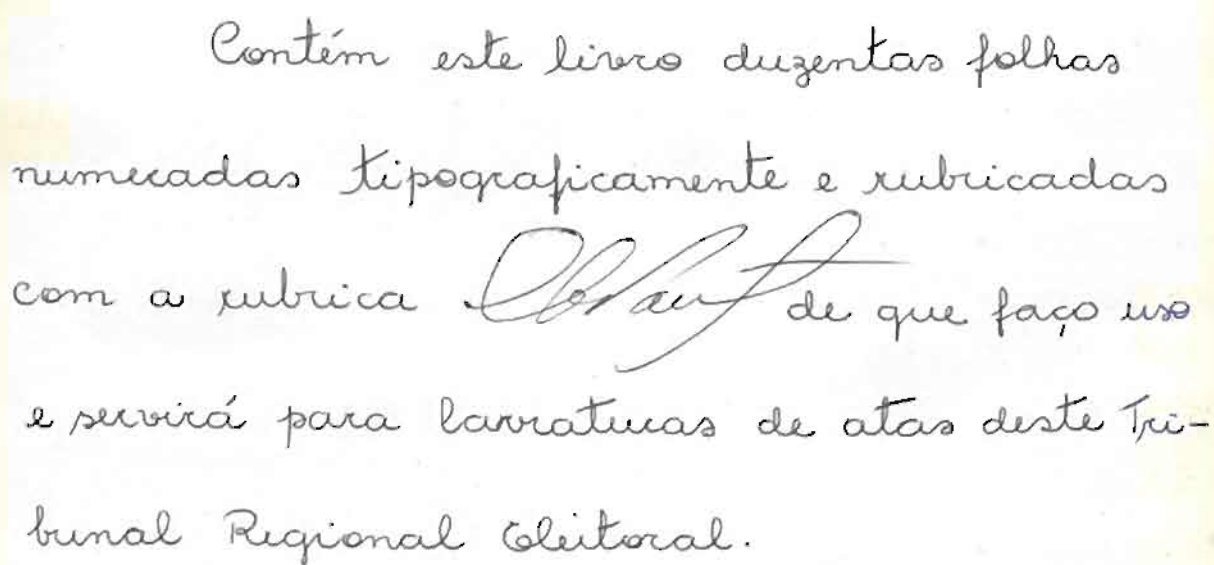 Contém este livro duzentas folhas
numeradas tipograficamente e rubricadas
com a rubrica de que faço uso
e servirá para lavraturas de atas deste Tri-
bunal Regional Eleitoral.